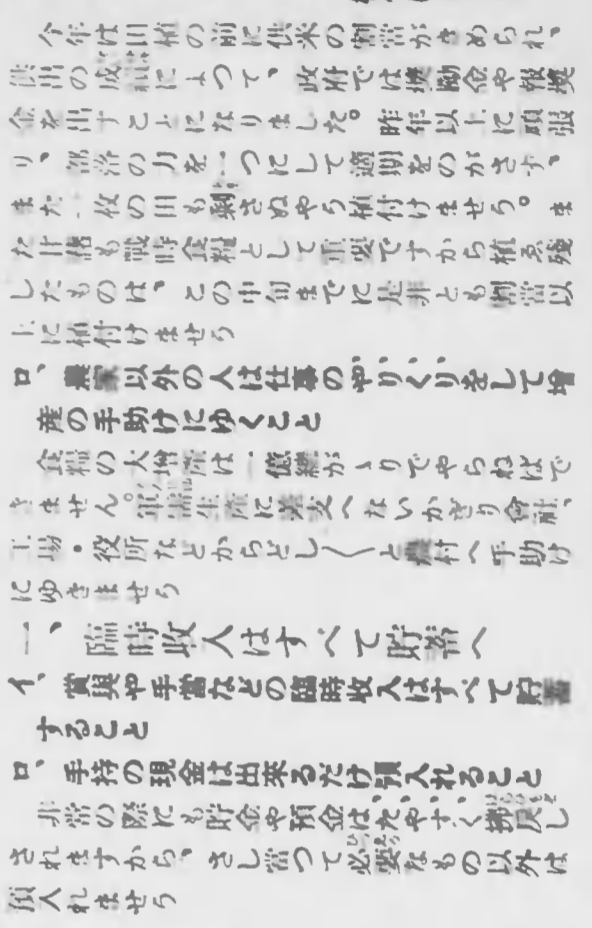 今年は田植の前に供米の割当がきめられ、
供出の成績によつて、政府では奨励金や報奨
金を出すことになりました。昨年以上に頑張
り、部落の力を一つにして適期をのがさず、
また一枚の田も剰さぬやう植付けませう。ま
た甘藷も戦時食糧として重要ですから植ゑ残
したものは、この中旬までに是非とも割当以
上に植付けませう
ロ、農家以外の人は仕事のやりくりをして増
産の手助けにゆくこと
食糧の大増産は一億総がゝりでやらねばで
きません。軍需生産に差支へないかぎり会社、
工場・役所などからどし〱と農村へ手助け
にゆきませう
一、臨時収入はすべて貯蓄へ
イ、賞與や手當などの臨時収入はすべて貯蓄
すること
ロ、手持の現金は出来るだけ預入れること
非常の際にも貯金や預金は、たやすく拂戻し
されますから、さし當つて必要なもの以外は
預入れませう